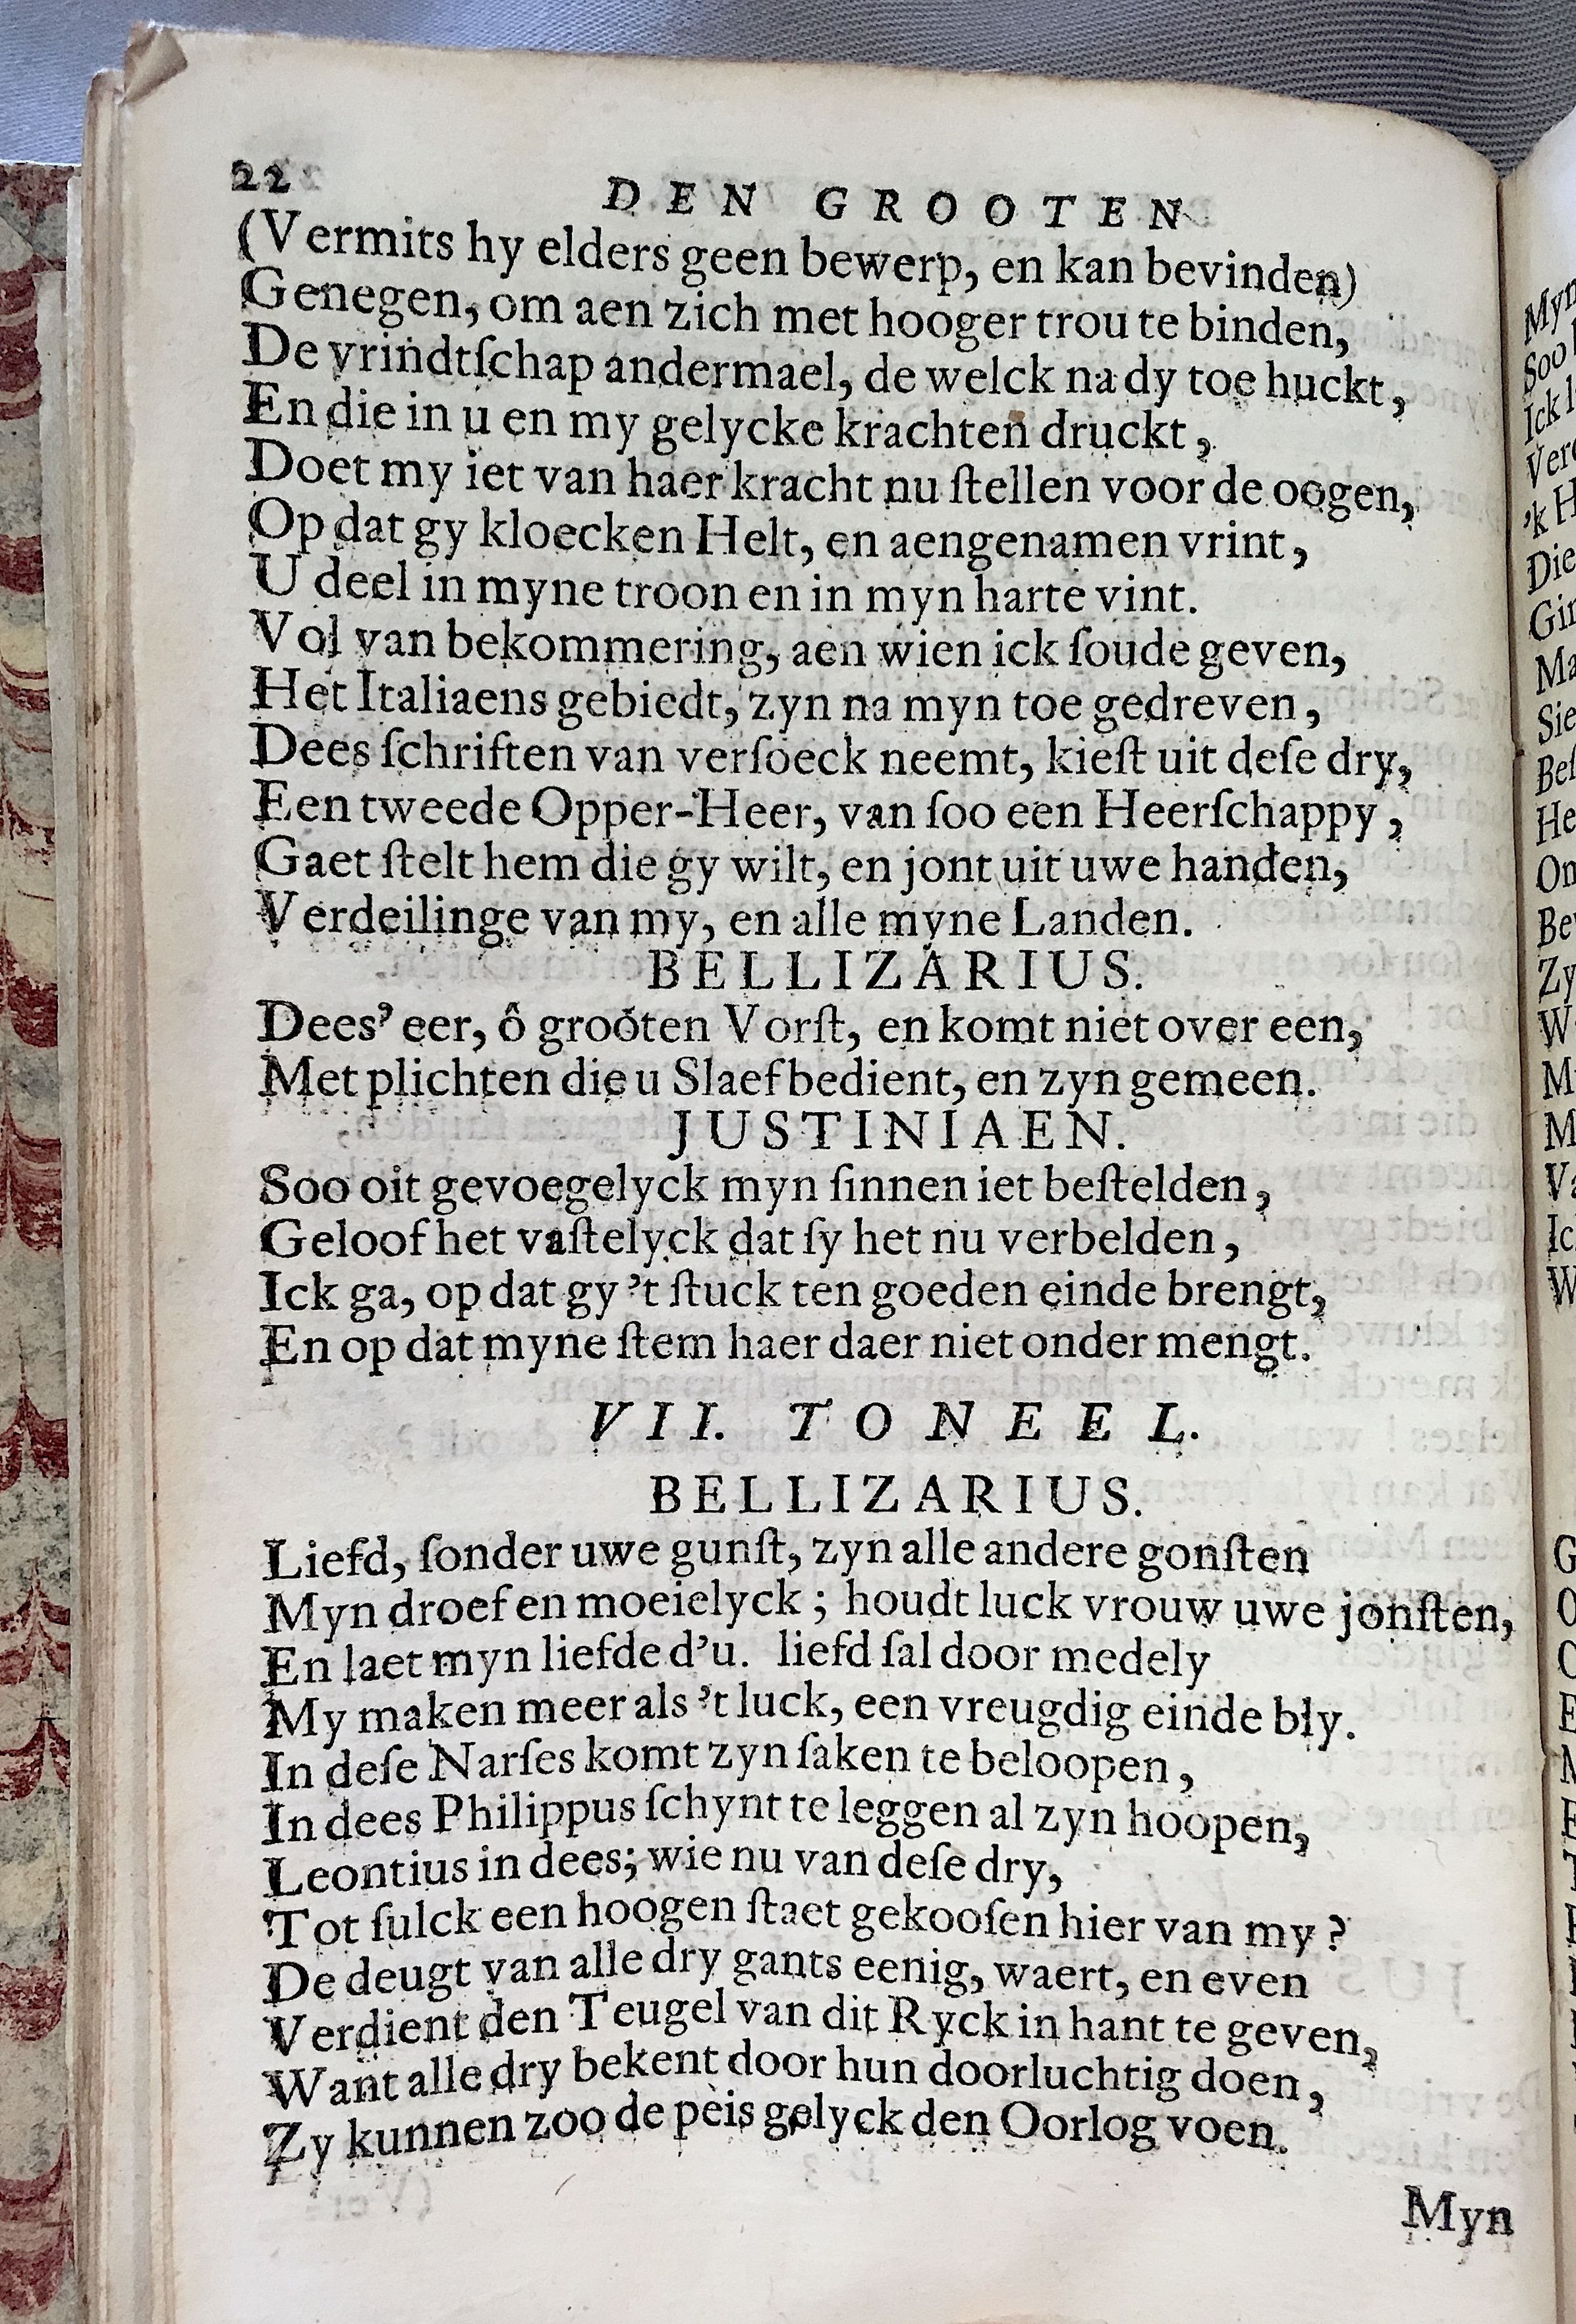 22
DEN GROOTEN
(Vermits hy elders geen bewerp, en kan bevinden)
Genegen, om aen zich met hooger trou te binden,
De vrindtſchap andermael, de welck na dy toe huckt,
En die in u en my gelycke krachten druckt,
Doet my iet van haer kracht nu ſtellen voor de oogen,
Op dat gy kloecken Helt, en aengenamen vrint,
U deel in myne troon en in myn harte vint.
Vol van bekommering, aen wien ick ſoude geven,
Het Italiaens gebiedt, zyn na myn toe gedreven,
Dees ſchriften van verſoeck neemt, kieſt uit deſe dry,
Een tweede Opper-Heer, van ſoo een Heerſchappy,
Gaet ſtelt hem die gy wilt, en jont uit uwe handen,
Verdeilinge van my, en alle myne Landen.
BELLIZARIUS.
Dees' eer, ô grooten Vorſt, en komt niet over een,
Met plichten die u Slaef bedient, en zyn gemeen.
JUSTINIAEN.
Soo oit gevoegelyck myn ſinnen iet beſtelden,
Geloof het vaſtelyck dat ſy het nu verbelden,
Ick ga, op dat gy 't ſtuck ten goeden einde brengt,
En op dat myne ſtem haer daer niet onder mengt.
VII. TONEEL.
BELLIZARIUS.
Liefd, ſonder uwe gunſt, zyn alle andere gonſten
Myn droef en moeielyck; houdt luck vrouw uwe jonſten,
En laet myn liefde d'u. liefd ſal door medely
My maken meer als 't luck, een vreugdig einde bly.
In deſe Narſes komt zyn ſaken te beloopen,
In dees Philippus ſchynt te leggen al zyn hoopen,
Leontius in dees; wie nu van deſe dry,
Tot ſulck een hoogen ſtaet gekooſen hier van my?
De deugt van alle dry gants eenig, waert, en even
Verdient den Teugel van dit Ryck in hant te geven,
Want alle dry bekent door hun doorluchtig doen,
Zy kunnen zoo de peis gelyck den Oorlog voen.
Myn